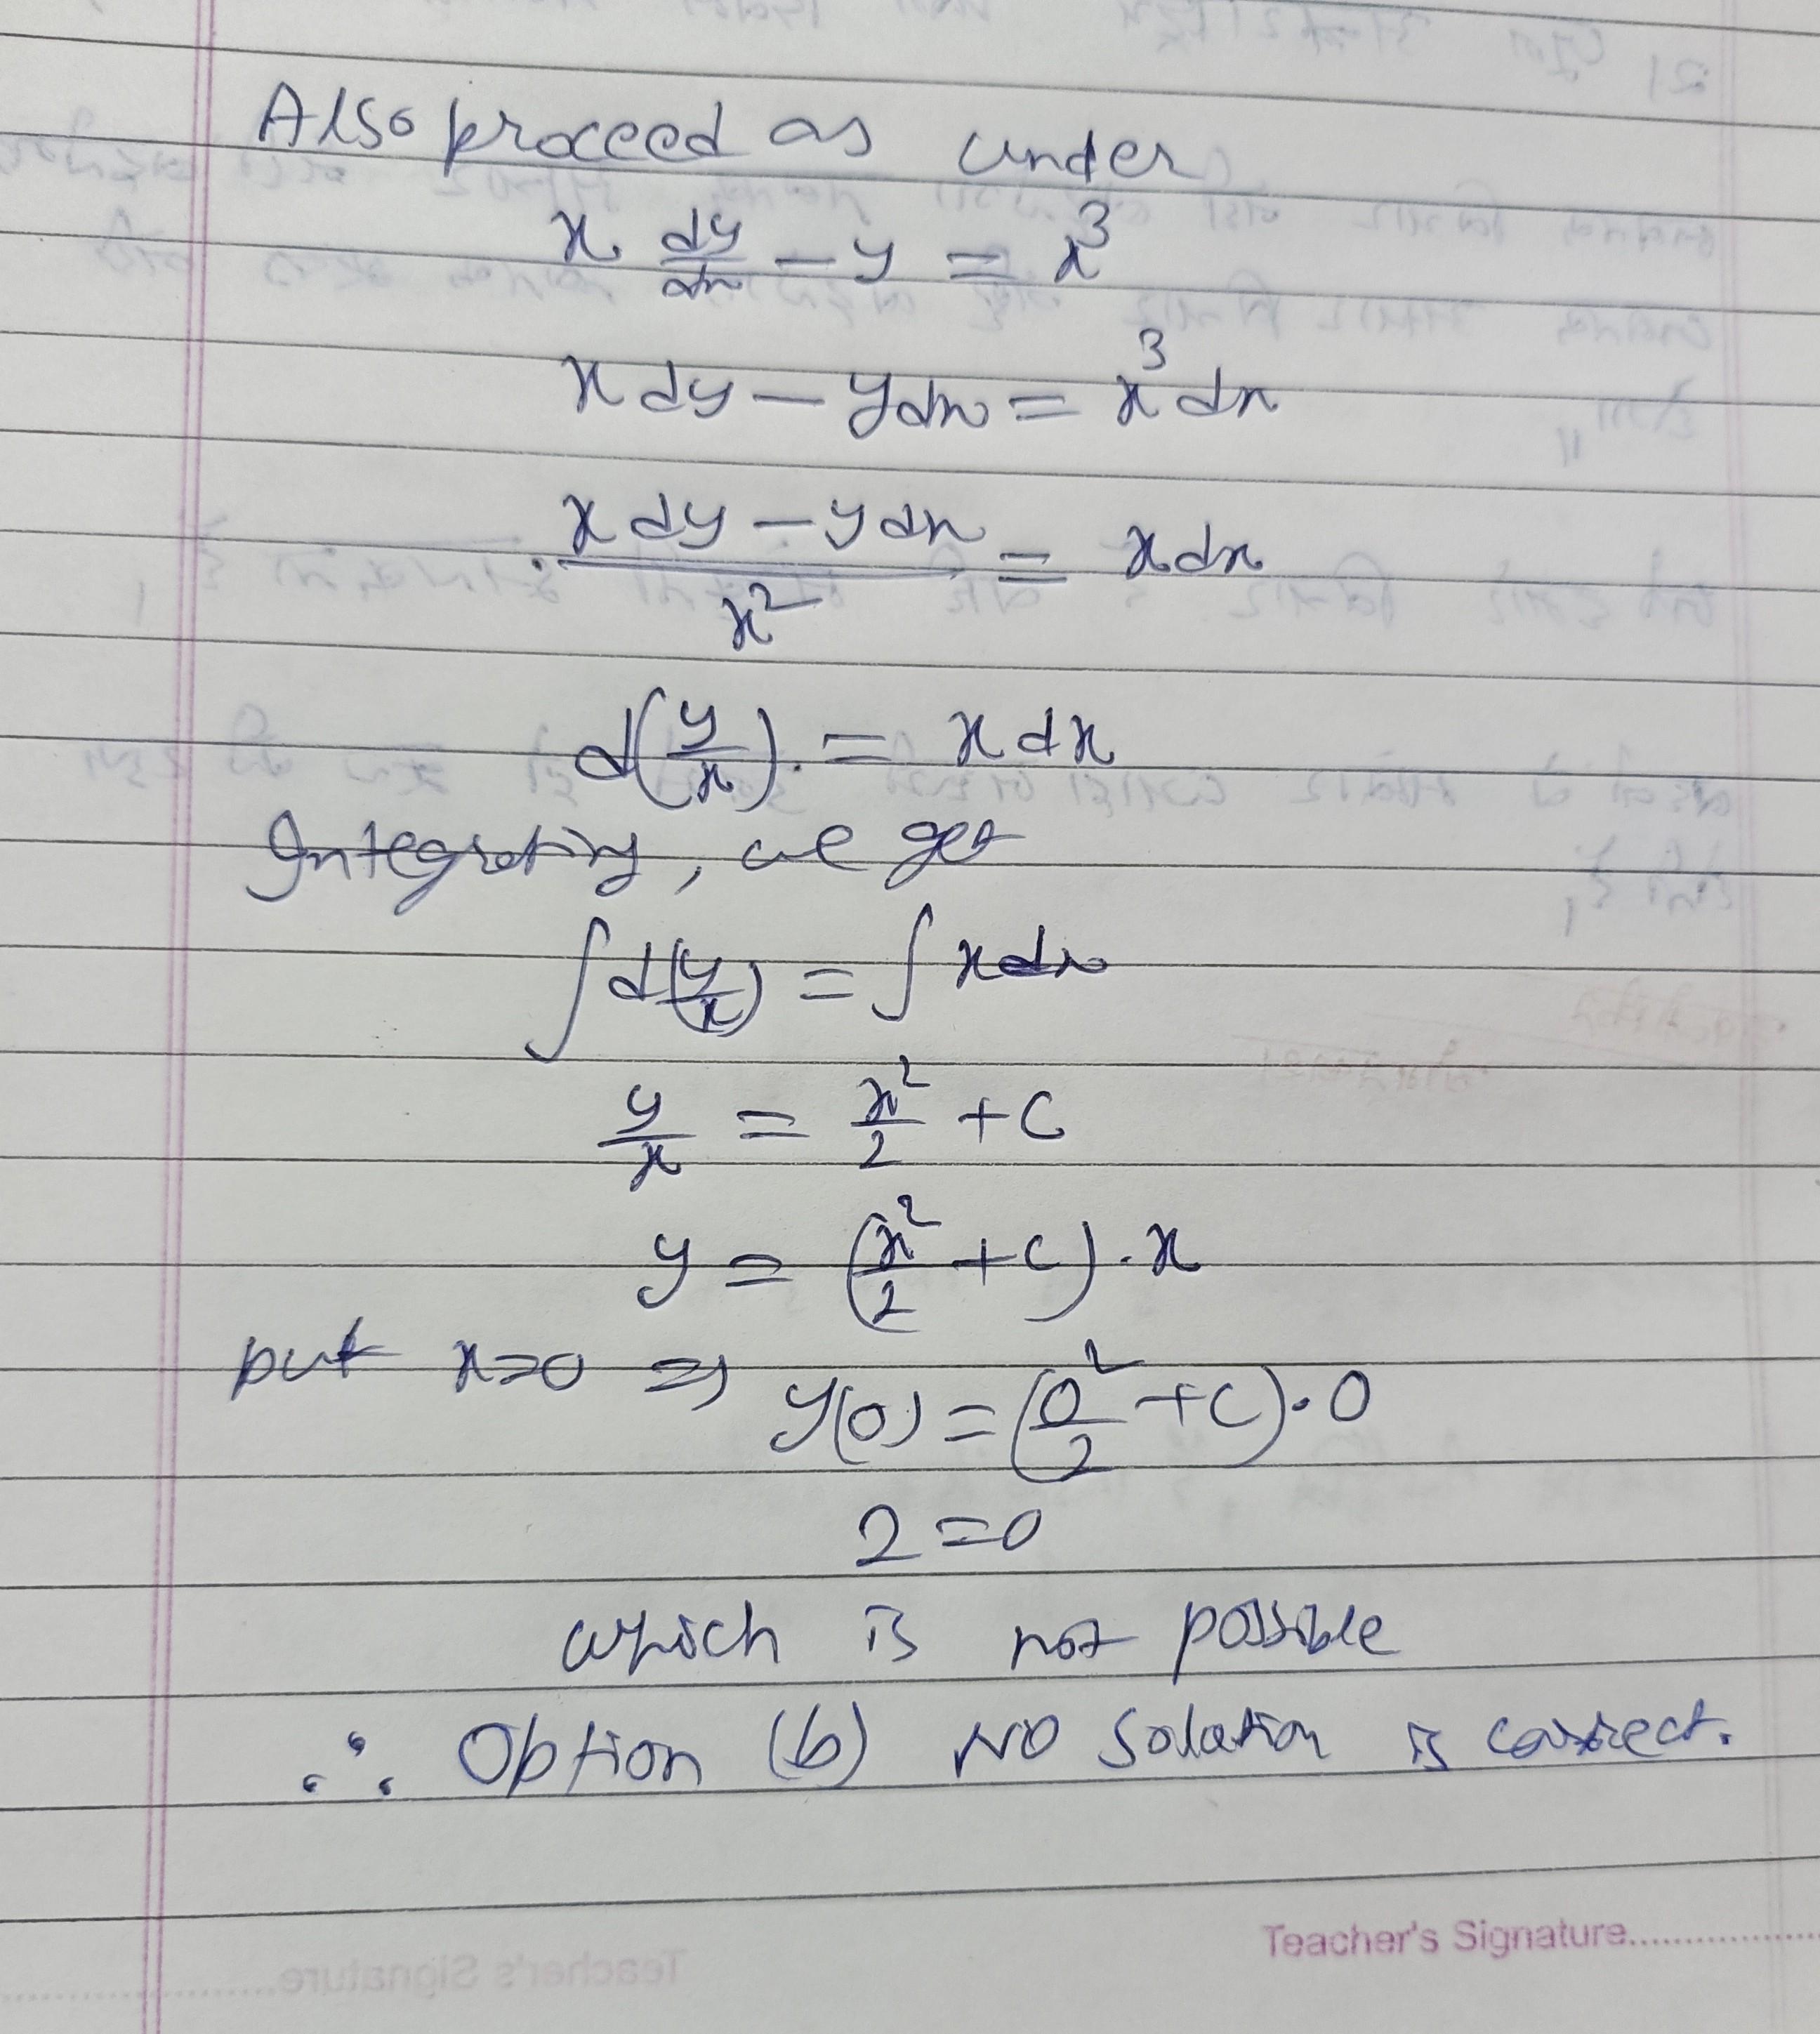 Also proceed as under
x dy/dx - y = x³
x dy - y dx = x³ dx
(x dy - y dx)/x² = x dx
d(y/x) = x dx
Integrating, we get
∫ d(y/x) = ∫ x dx
y/x = x²/2 + C
y = (x²/2 + C) · x
put x=0 ⇒ y(0) = (0²/2 + C) · 0
2 = 0
which is not possible
∴ Option (b) NO Solution is correct.
Teacher's Signature